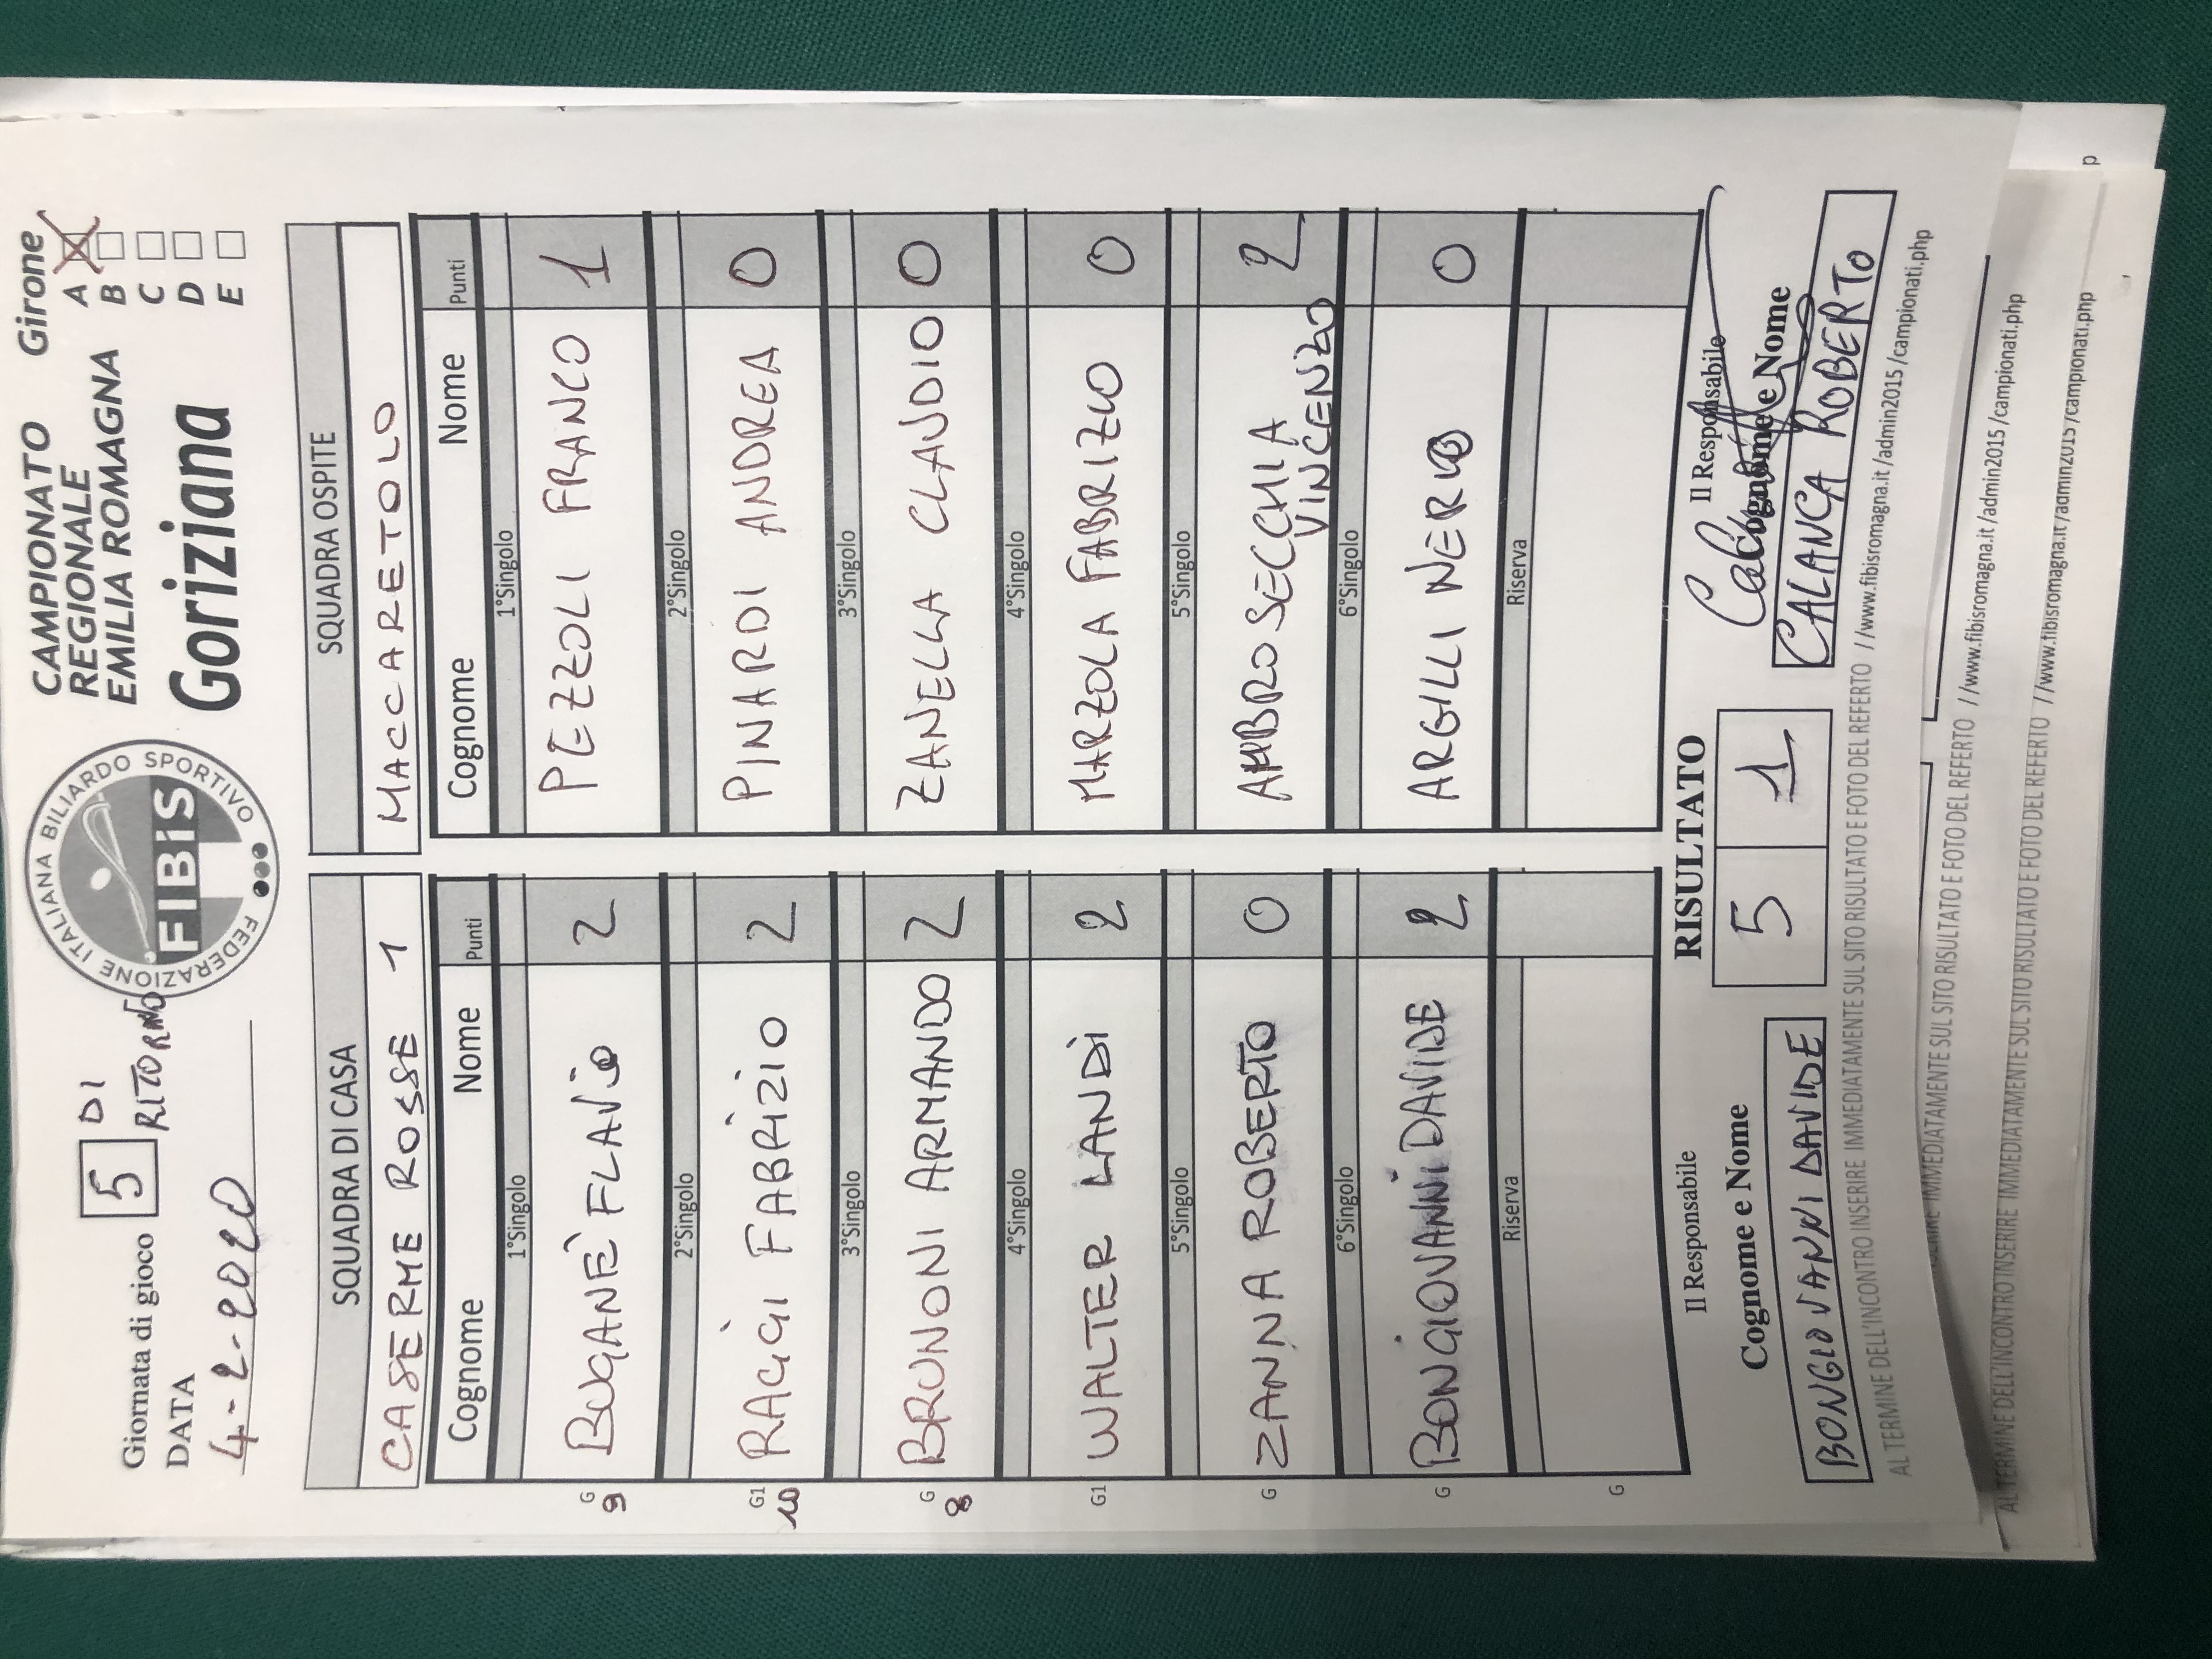 Giornata di gioco 5 DI
RITORNO
DATA
4-2-2020
FEDERAZIONE ITALIANA BILIARDO SPORTIVO
FIBiS
CAMPIONATO
REGIONALE
EMILIA ROMAGNA
Goriziana
Girone
A
B
C
D
E
SQUADRA DI CASA
CASERME ROSSE 1
Cognome Nome Punti
1°Singolo
G 9 BUGANÈ FLAVIO 2
2°Singolo
G1 10 RAGGI FABRIZIO 2
3°Singolo
G 8 BRUNONI ARMANDO 2
4°Singolo
G1 WALTER LANDI 2
5°Singolo
G ZANNA ROBERTO 0
6°Singolo
G BONGIOVANNI DAVIDE 2
Riserva
G
SQUADRA OSPITE
MACCARETOLO
Cognome Nome Punti
1°Singolo
PEZZOLI FRANCO 1
2°Singolo
PINARDI ANDREA 0
3°Singolo
ZANELLA CLAUDIO 0
4°Singolo
MARZOLA FABRIZIO 0
5°Singolo
AMBROSECCHIA VINCENZO 2
6°Singolo
ARGILLI NERIO 0
Riserva
Il Responsabile
Cognome e Nome
BONGIOVANNI DAVIDE
RISULTATO
5 1
Il Responsabile
Cognome e Nome
CALANCA ROBERTO
AL TERMINE DELL'INCONTRO INSERIRE IMMEDIATAMENTE SUL SITO RISULTATO E FOTO DEL REFERTO //www.fibisromagna.it/admin2015/campionati.php
IMMEDIATAMENTE SUL SITO RISULTATO E FOTO DEL REFERTO //www.fibisromagna.it/admin2015/campionati.php
AL TERMINE DELL'INCONTRO INSERIRE IMMEDIATAMENTE SUL SITO RISULTATO E FOTO DEL REFERTO //www.fibisromagna.it/admin2015/campionati.php
p